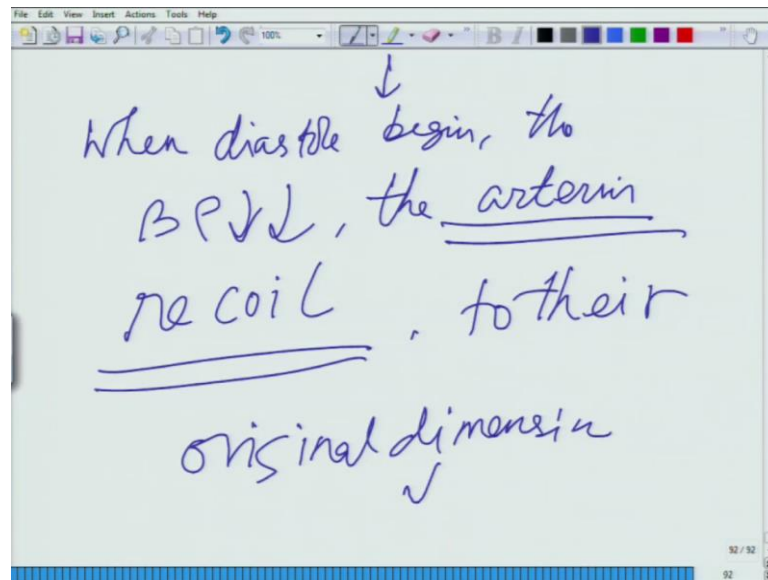 File Edit View Insert Actions Tools Help
100%
B I
When diastole begin, the
BP↓↓, the arterin
recoil. to their
original dimensin
92 / 92
92